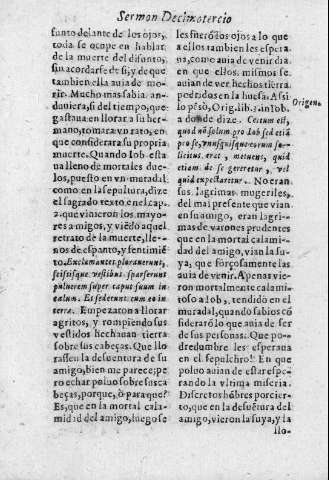 Sermon Decimotercio
funto delante de los ojos,
toda se ocupe en hablar
de la muerte del difunto,
sin acordarse de si, y de que
tambien ella auia de mo-
rir. Mucho mas sabia an-
duuiera, si del tiempo, que
gastaua en llorar a su her-
mano, tomara vn rato, en
que considerara su propria
muerte. Quando Iob esta-
ua lleno de mortales due-
los, puesto en vn muradal,
como en la sepultura, dize
el sagrado texto en el cap.
2. que vinieron los mayo-
res amigos, y viẽdo aquel
retrato de la muerte, lle-
nos de espanto, y sentimiẽ
to. Exclamantes plorauerunt,
scisisque vestibus sparserunt
puluerem super caput suum in
cælum. Et sederunt cum eo in
terra. Empezaton a llorar
a gritos, y rompiendo sus
vestidos hechauan tierra
sobre sus cabeças. Que llo
rassen la desuentura de su
amigo, bien me parece; pe
ro echar poluo sobre sus ca
beças, porque, ò para que?
Es, que en la mortal cala-
midad del amigo, luego se
les fuerõ los ojos a lo que
a ellos tambien les espera-
na, como auia de venir dia,
en que ellos mismos se
auian de ver hechos tierra,
podridos en la huesa. Assi
lo pẽsò, Orig. lib. 1. in Iob.
a donde dize. Certum est,
quod nõ solum pro Iob sed etiã
pro se, vnusquisque eorum sol-
licitus erat, metuens, quid
etiam de se gereretur, vel
quid expectaretur. No eran
sus lagrimas mugeriles,
del mal presente que vian
en su amigo, eran lagri-
mas de varones prudentes
que en la mortal calami-
dad del amigo, vian la su-
ya, que forçosamente les
auia de venir. Apenas vie-
ron mortalmente calamitoso
a Iob, tendido en el
muradal, quando sabios cõ
siderarõ lo que auia de ser
de sus personas. Que po-
dredumbre les esperaua
en el sepulchro! En que
poluo auian de estar espe-
rando la vltima miseria.
Discretos hõbres porcier-
to, que en la desuẽtura del
amigo, vieron la suya, y la
llo-
Origen.